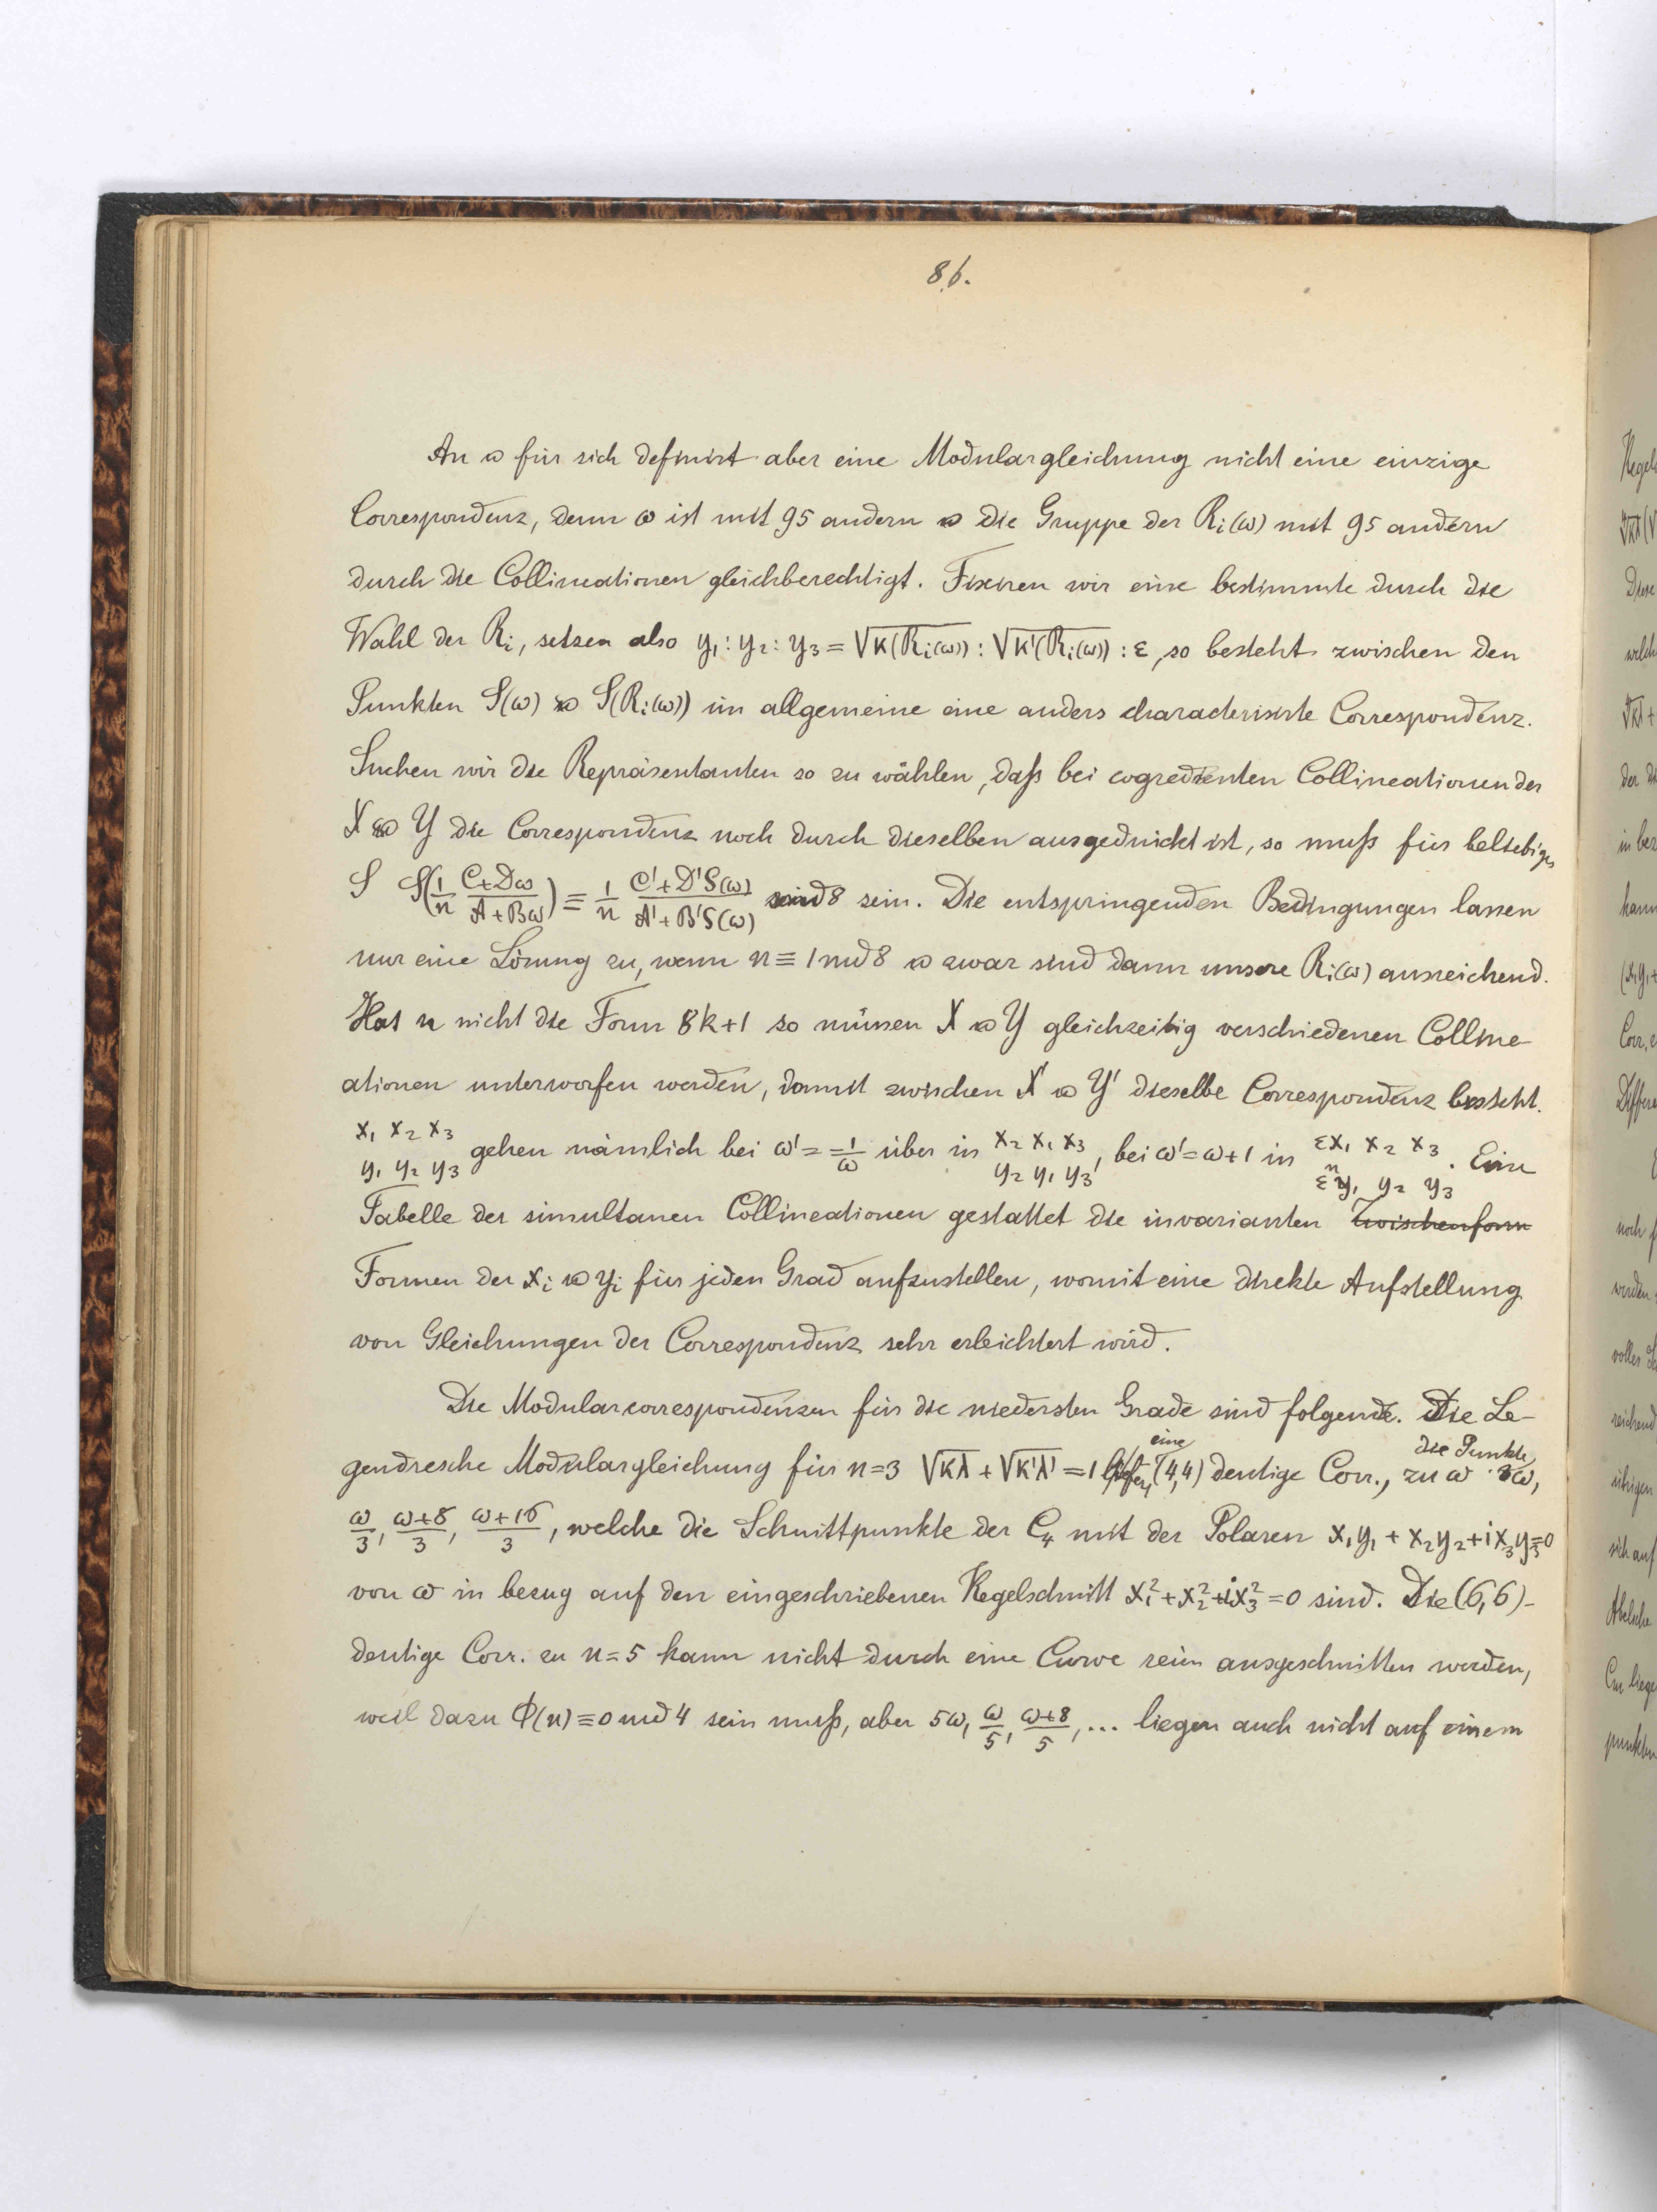 86.
An & für sich definirt aber eine Modulargleichung nicht eine einzige
Correspondenz, denn ω ist mit 95 andern & die Gruppe der Ri(ω) mit 95 andern
durch die Collineationen gleichberechtigt. Fixiren wir eine bestimmte durch die
Wahl der Ri, setzen also y₁:y₂:y₃ = √K(Ri(ω)) : √K'(Ri(ω)) : ε, so besteht zwischen den
Punkten S(ω) & S(Ri(ω)) im allgemeine eine anders characterisirte Correspondenz.
Suchen wir die Repräsentanten so zu wählen, daß bei cogredienten Collineationen der
X & Y die Correspondenz noch durch dieselben ausgedrückt ist, so muß für beliebiges
S S(1/n (C+Dω)/(A+Bω)) ≡ 1/n (C'+D'S(ω))/(A'+B'S(ω)) mod 8 sein. Die entspringenden Bedingungen lassen
nur eine Lösung zu, wenn n ≡ 1 mod 8 & zwar sind dann unsere Ri(ω) ausreichend.
Hat n nicht die Form 8k+1 so müssen X & Y gleichzeitig verschiedenen Colline-
ationen unterworfen werden, damit zwischen X' & Y' dieselbe Correspondenz besteht.
x₁ x₂ x₃ y₁ y₂ y₃ gehen nämlich bei ω' = -1/ω über in x₂ x₁ x₃ y₂ y₁ y₃, bei ω'=ω+1 in εx₁ x₂ x₃ εⁿy₁ y₂ y₃. Eine
Tabelle der simultanen Collineationen gestattet die invarianten Zwischenform
Formen der xi & yi für jeden Grad aufzustellen, womit eine direkte Aufstellung
von Gleichungen der Correspondenz sehr erleichtert wird.
Die Modularcorrespondenzen für die niedersten Grade sind folgende. Die Le-
gendresche Modulargleichung für n=3 √Kλ + √K'λ' = 1 eine (4,4) deutige Corr., zu ω die Punkte 3ω,
ω/3, (ω+8)/3, (ω+16)/3, welche die Schnittpunkte der C₄ mit der Polaren x₁y₁ + x₂y₂ + ix₃y₃=0
von ω in bezug auf den eingeschriebenen Kegelschnitt x₁²+x₂²+ix₃²=0 sind. Die (6,6)-
deutige Corr. zu n=5 kann nicht durch eine Curve rein ausgeschnitten werden,
weil dazu Φ(n)≡0 mod 4 sein muß, aber 5ω, ω/5, (ω+8)/5, ... liegen auch nicht auf einem